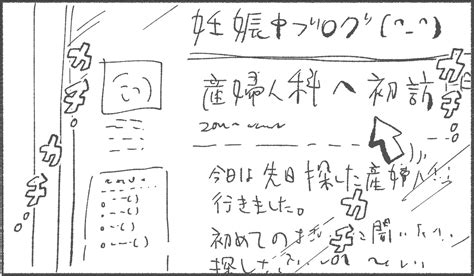 妊娠中ブログ(^-^)
産婦人科へ初訪
今日は先日探した産婦人
行きました。
初めての
探した
カチ
カチ
カチ
カチ